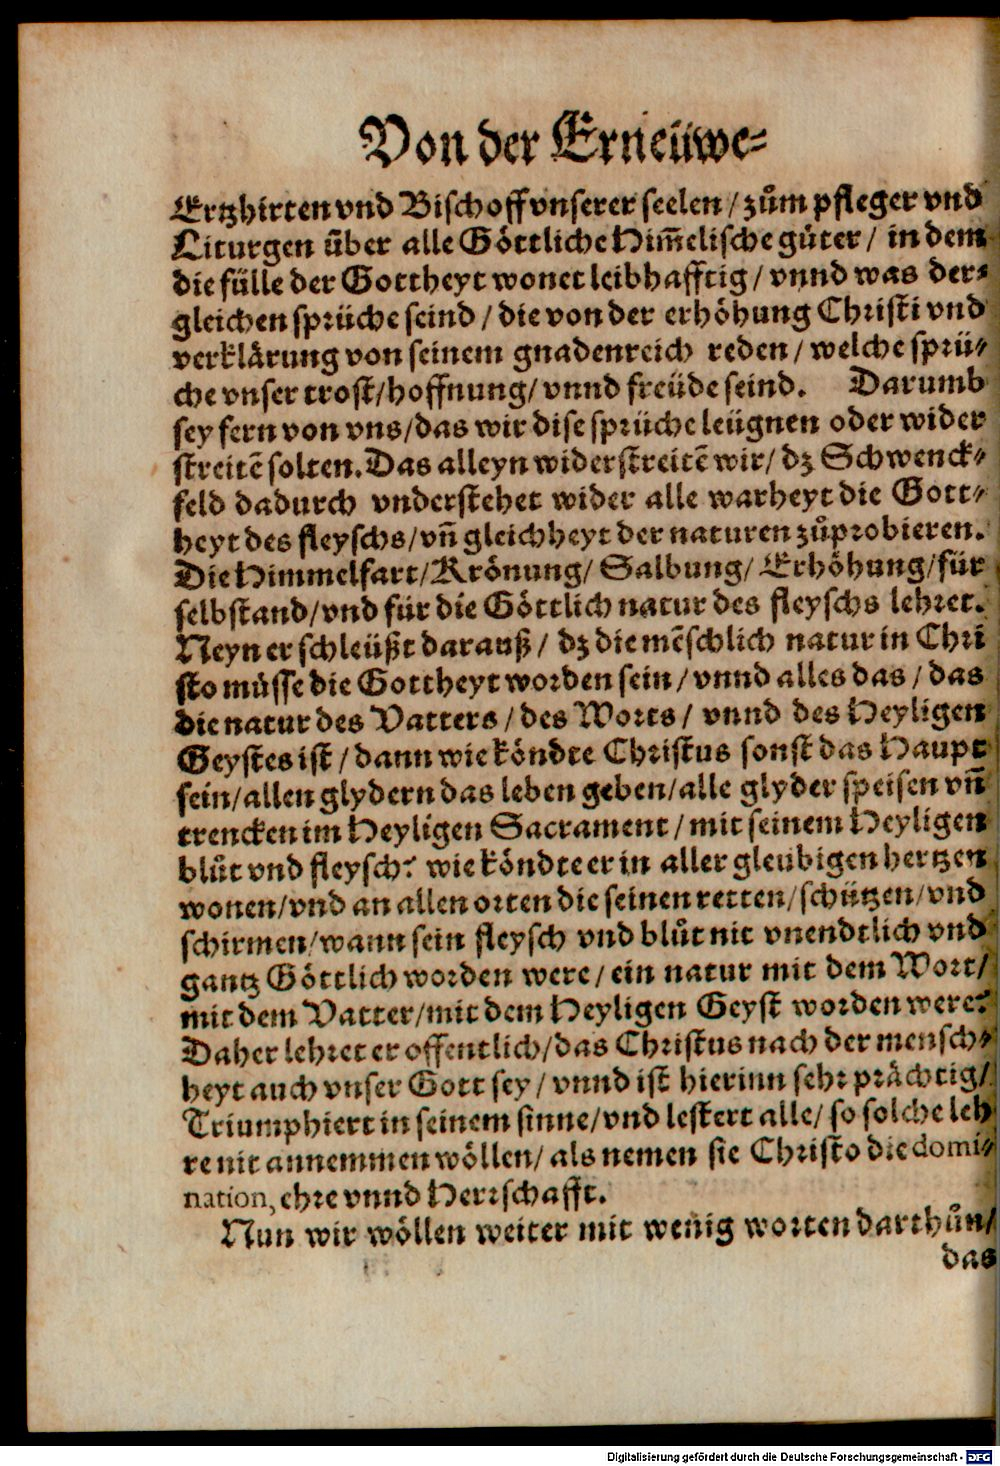 Von der Erneüwe⸗
Ertzhirten vnd Bischoff vnserer seelen / zům pfleger vnd
Liturgen über alle Göttliche Him̄elische güter / in dem
die fülle der Gottheyt wonet leibhafftig / vnnd was der⸗
gleichen sprüche seind / die von der erhöhung Christi vnd
verklärung von seinem gnadenreich reden / welche sprü⸗
che vnser trost / hoffnung / vnnd freüde seind. Darumb
sey fern von vns / das wir dise sprüche leügnen oder wider
streitē solten. Das alleyn widerstreitē wir / dz Schwenck⸗
feld dadurch vnderstehet wider alle warheyt die Gott⸗
heyt des fleyschs / vn̄ gleichheyt der naturen zůprobieren.
Die Himmelfart / Krönung / Salbung / Erhöhung / für
selbstand / vnd für die Göttlich natur des fleyschs lehret.
Neyn er schleüßt darauß / dz die mēschlich natur in Chri
sto müsse die Gottheyt worden sein / vnnd alles das / das
die natur des Vatters / des Worts / vnnd des Heyligen
Geystes ist / dann wie köndte Christus sonst das Haupt
sein / allen glydern das leben geben / alle glyder speisen vn̄
trencken im Heyligen Sacrament / mit seinem Heyligen
blůt vnd fleysch? wie köndte er in aller gleubigen hertzen
wonen / vnd an allen orten die seinen retten / schützen / vnd
schirmen / wann sein fleysch vnd blůt nit vnendtlich vnd
gantz Göttlich worden were / ein natur mit dem Wort /
mit dem Vatter / mit dem Heyligen Geyst worden were?
Daher lehret er offentlich / das Christus nach der mensch⸗
heyt auch vnser Gott sey / vnnd ist hierinn sehr prächtig /
Triumphiert in seinem sinne / vnd lestert alle / so solche leh
re nit annemmen wöllen / als nemen sie Christo die domi⸗
nation, ehre vnnd Herrschafft.
Nun wir wöllen weiter mit wenig worten darthůn /
das
Digitalisierung gefördert durch die Deutsche Forschungsgemeinschaft - DFG